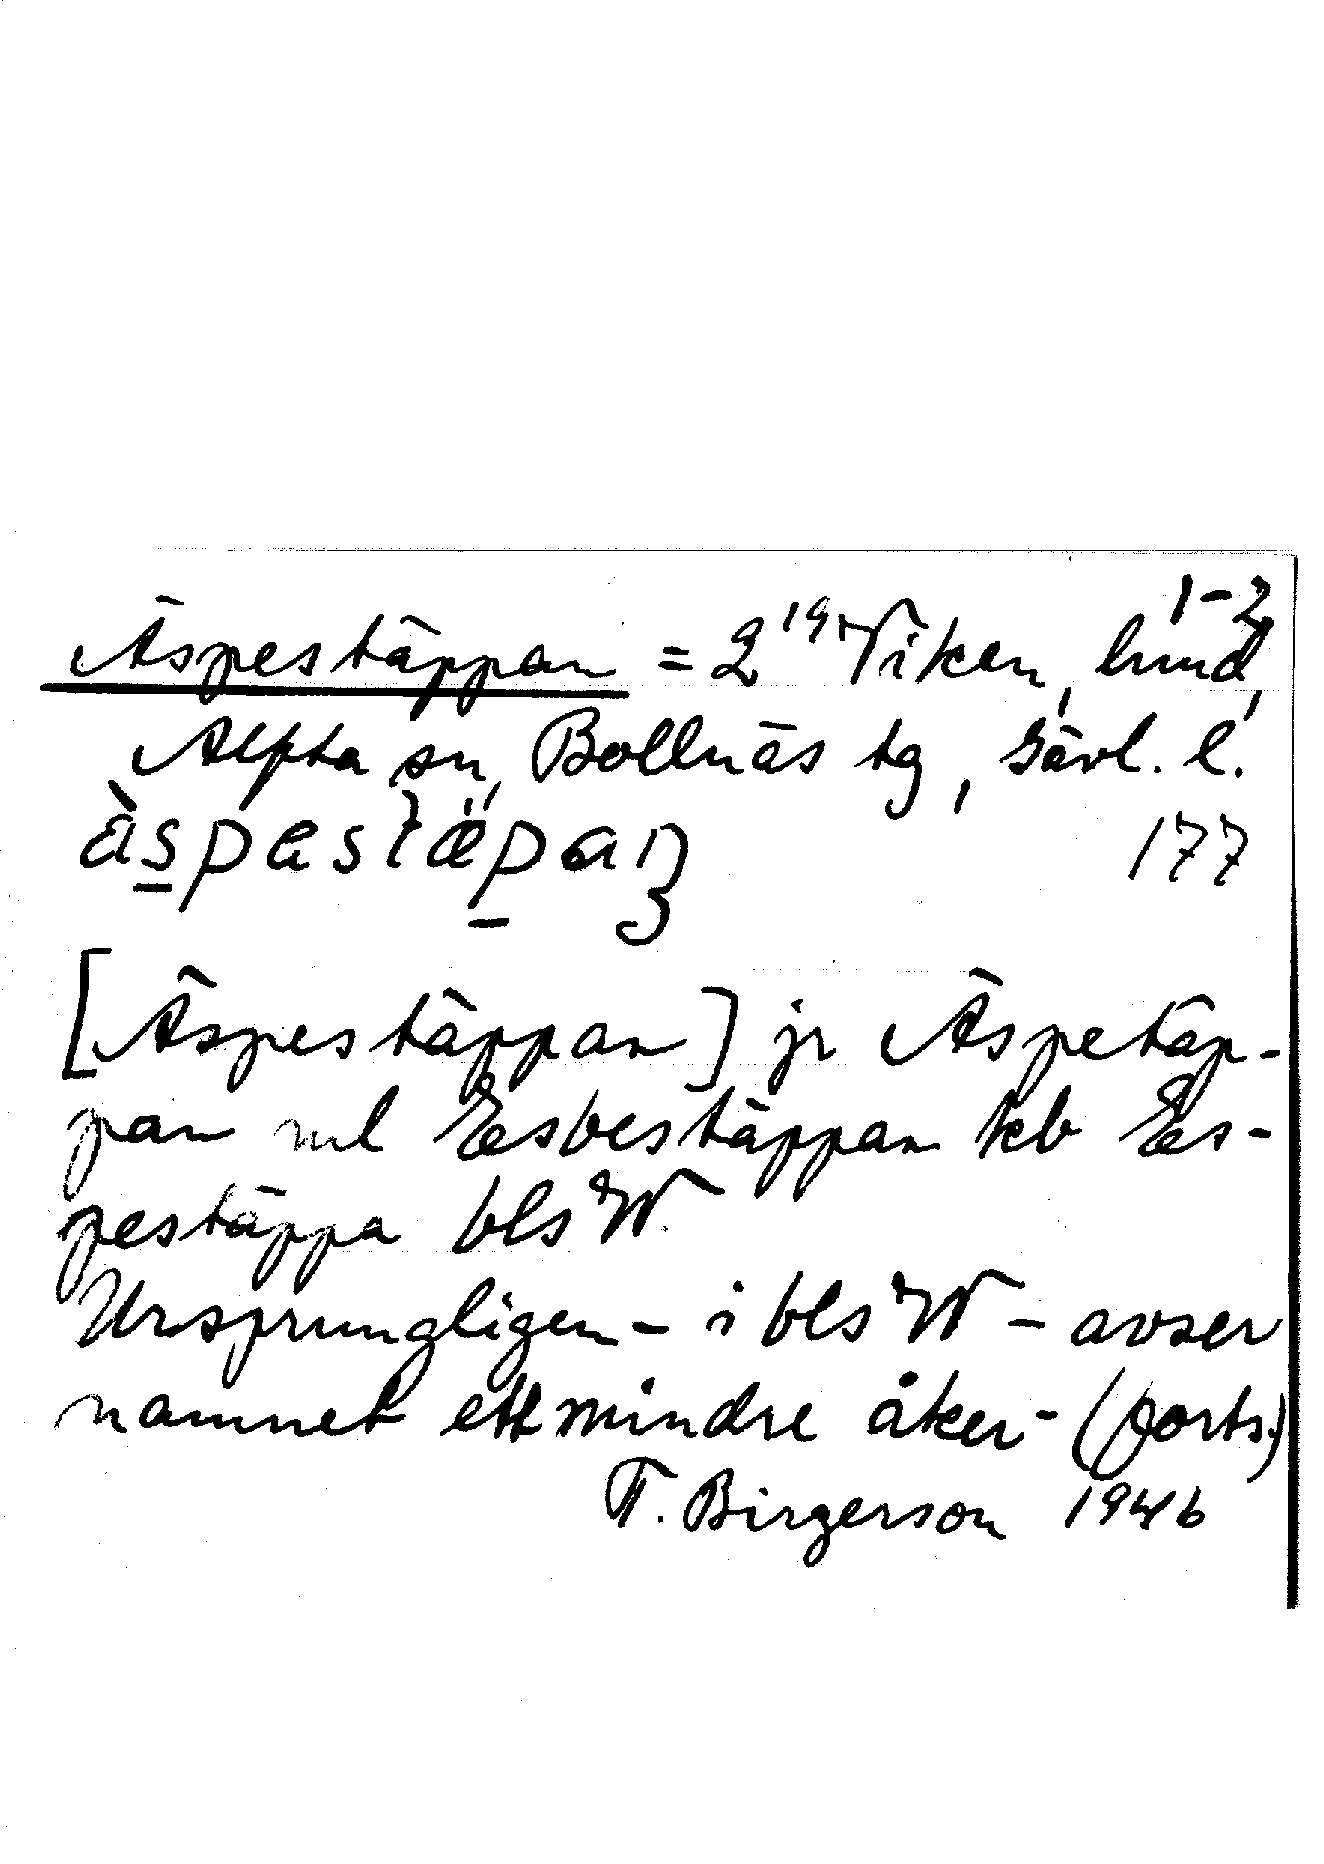 1-2
Äspestäppan = 2¹⁹ Viken, hmd,
Alfta sn, Bollnäs tg, Gävl. l.
àspestæ̈paṇ 177
[Äspestäppan] jr Äspetäp-
pan ml Esbestäppan kb Es-
pestäppa bls W.
Ursprungligen - i bls W - avser
namnet ett mindre åker- (forts.)
T. Birgerson 1946